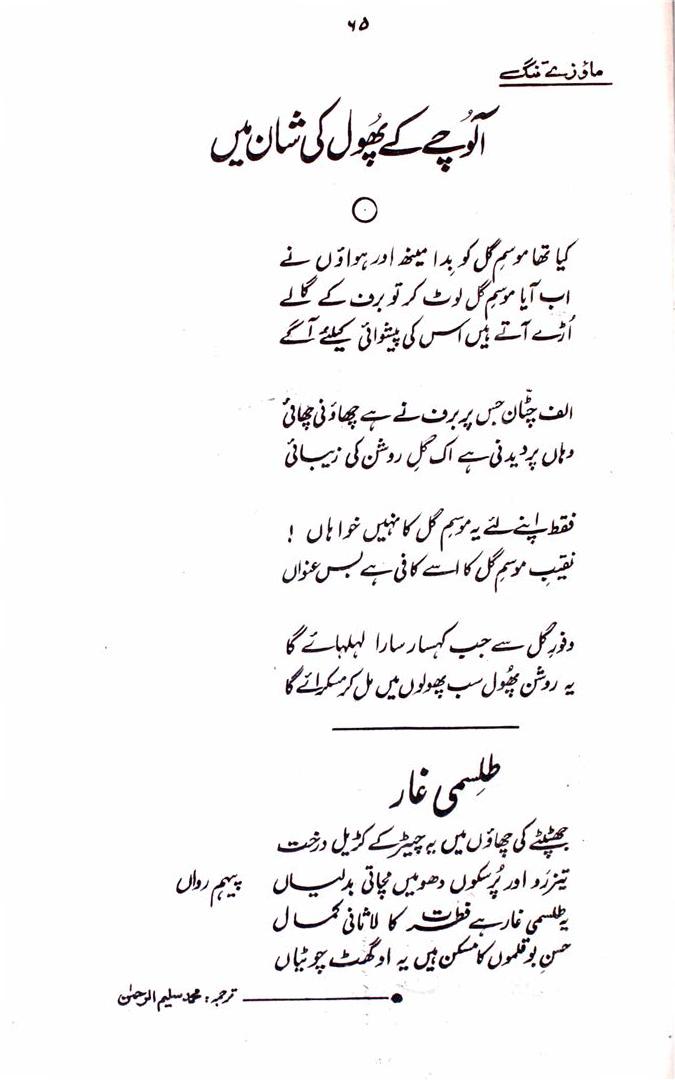 ۶۵
ماؤزے تنگ
آلُوچے کے پھُول کی شان میں
کیا تھا موسمِ گل کو بِدا مینھ اور ہواؤں نے
اب آیا موسمِ گل لوٹ کر تو برف کے گالے
اُڑے آتے ہیں اس کی پیشوائی کیلئے آگے
الف چٹّان جس پر برف نے ہے چھاؤنی چھائی
وہاں پر دیدنی ہے اک گلِ روشن کی زیبائی
فقط اپنے لئے یہ موسمِ گل کا نہیں خواہاں !
نقیبِ موسمِ گل کا اسے کافی ہے بس عنواں
وفورِ گل سے جب کہسار سارا لہلہائے گا
یہ روشن پھُول سب پھولوں میں مل کر مسکرائے گا
طلِسمی غار
جھٹپٹے کی چھاؤں میں یہ چیڑ کے کڑیل درخت
تیز رَو اور پُرسکوں دھومیں مچاتی بدلیاں پیہم رواں
یہ طلسمی غار ہے فطرت کا لاثانی کمال
حسنِ بوقلموں کا مسکن ہیں یہ اوگھٹ چوٹیاں
ترجمہ : محمد سلیم الرحمٰن